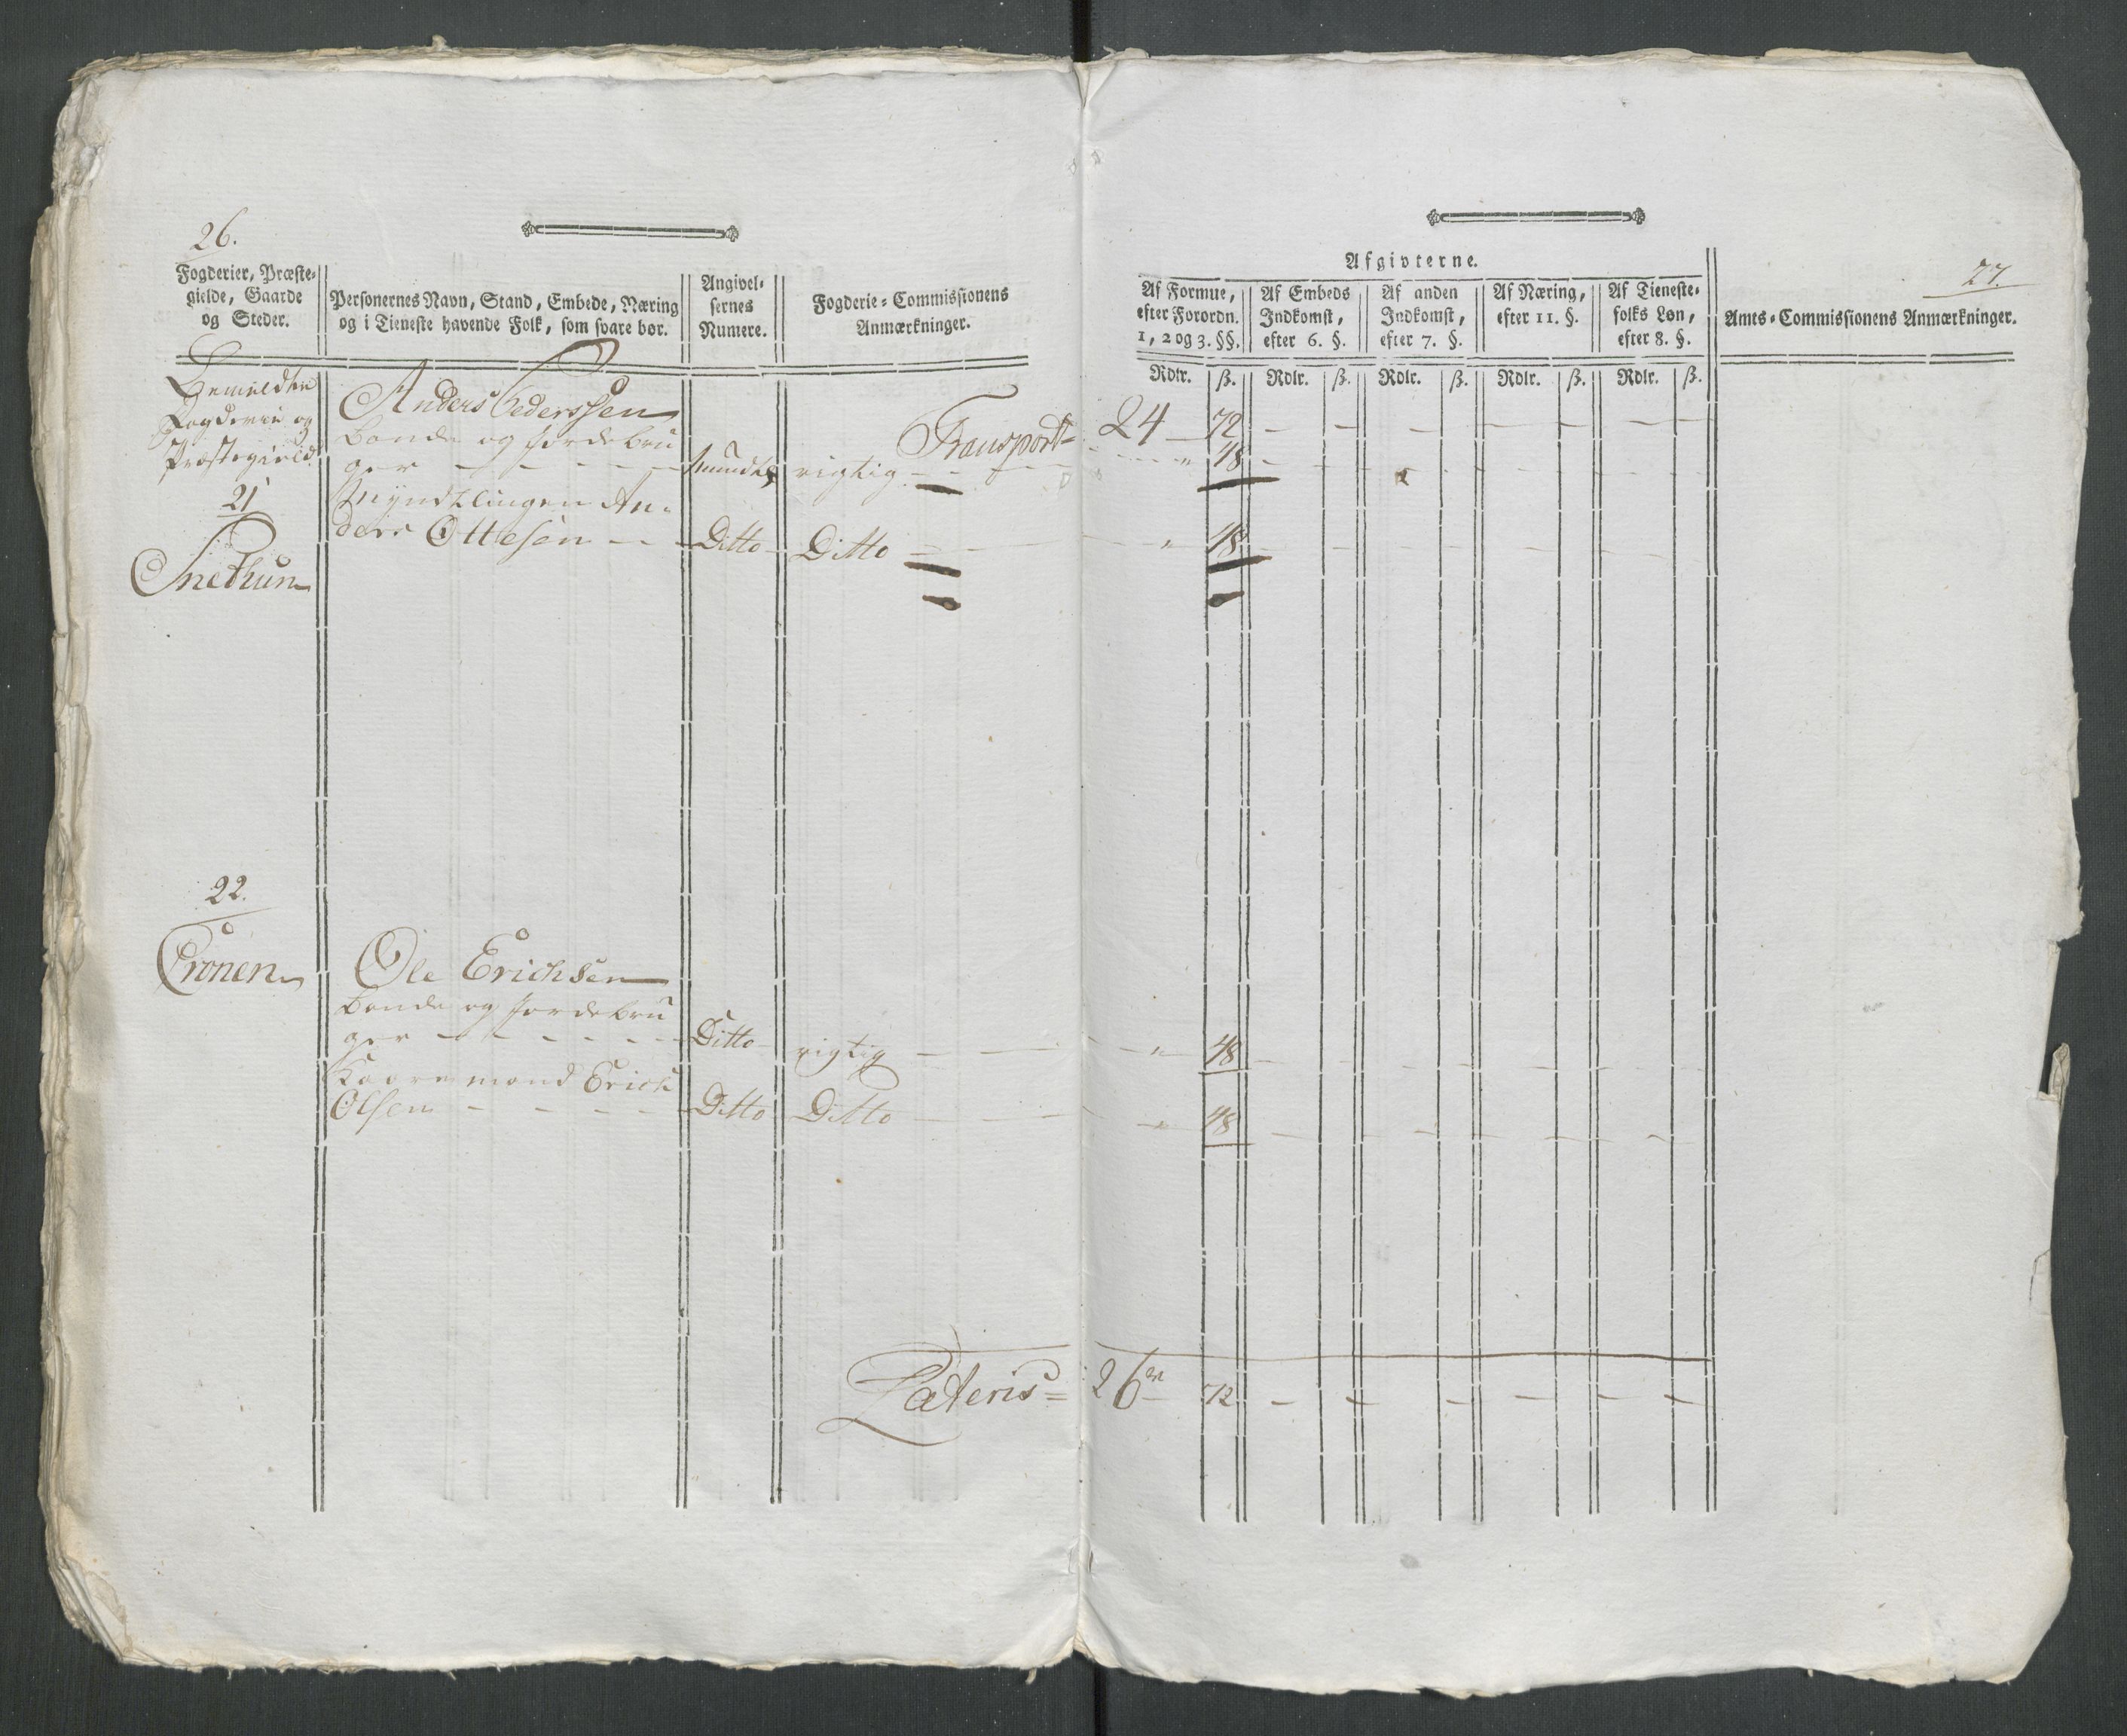 26.
Fogderier, Præste-
gielde, Gaarde
og Steder.
Personernes Navn, Stand, Embede, Næring
og i Tieneste havende Folk, som svare bør.
Angivel-
sernes
Numere.
Fogderie-Commissionens
Anmærkninger.
Bemeldte
Fogderie og
Præstegield
21
Snethun
Anders Pederssen
Bonde og jordebru
ger - - - - mundtl. rigtig
Transport
Myndtlingen An-
ders Ottesen - - Ditto Ditto
22.
Cronen
Ole Erichsen
Bonde og jordebru
ger - - - - - Ditto rigtig
Kaaremand Erich
Olsen - - - - Ditto Ditto
Lateris
27.
Afgivterne.
Af Formue,
efter Forordn.
1, 2 og 3. §§.
Af Embeds
Indkomst,
efter 6. §.
Af anden
Indkomst,
efter 7. §.
Af Næring,
efter 11. §.
Af Tieneste-
folks Løn,
efter 8. §.
Amts-Commissionens Anmærkninger.
Rdlr. ß. Rdlr. ß. Rdlr. ß. Rdlr. ß. Rdlr. ß.
24 72 - - - - - - - -
" 48 -
" 48 -
" 48 -
" 48 -
26 72 - - - - - - -